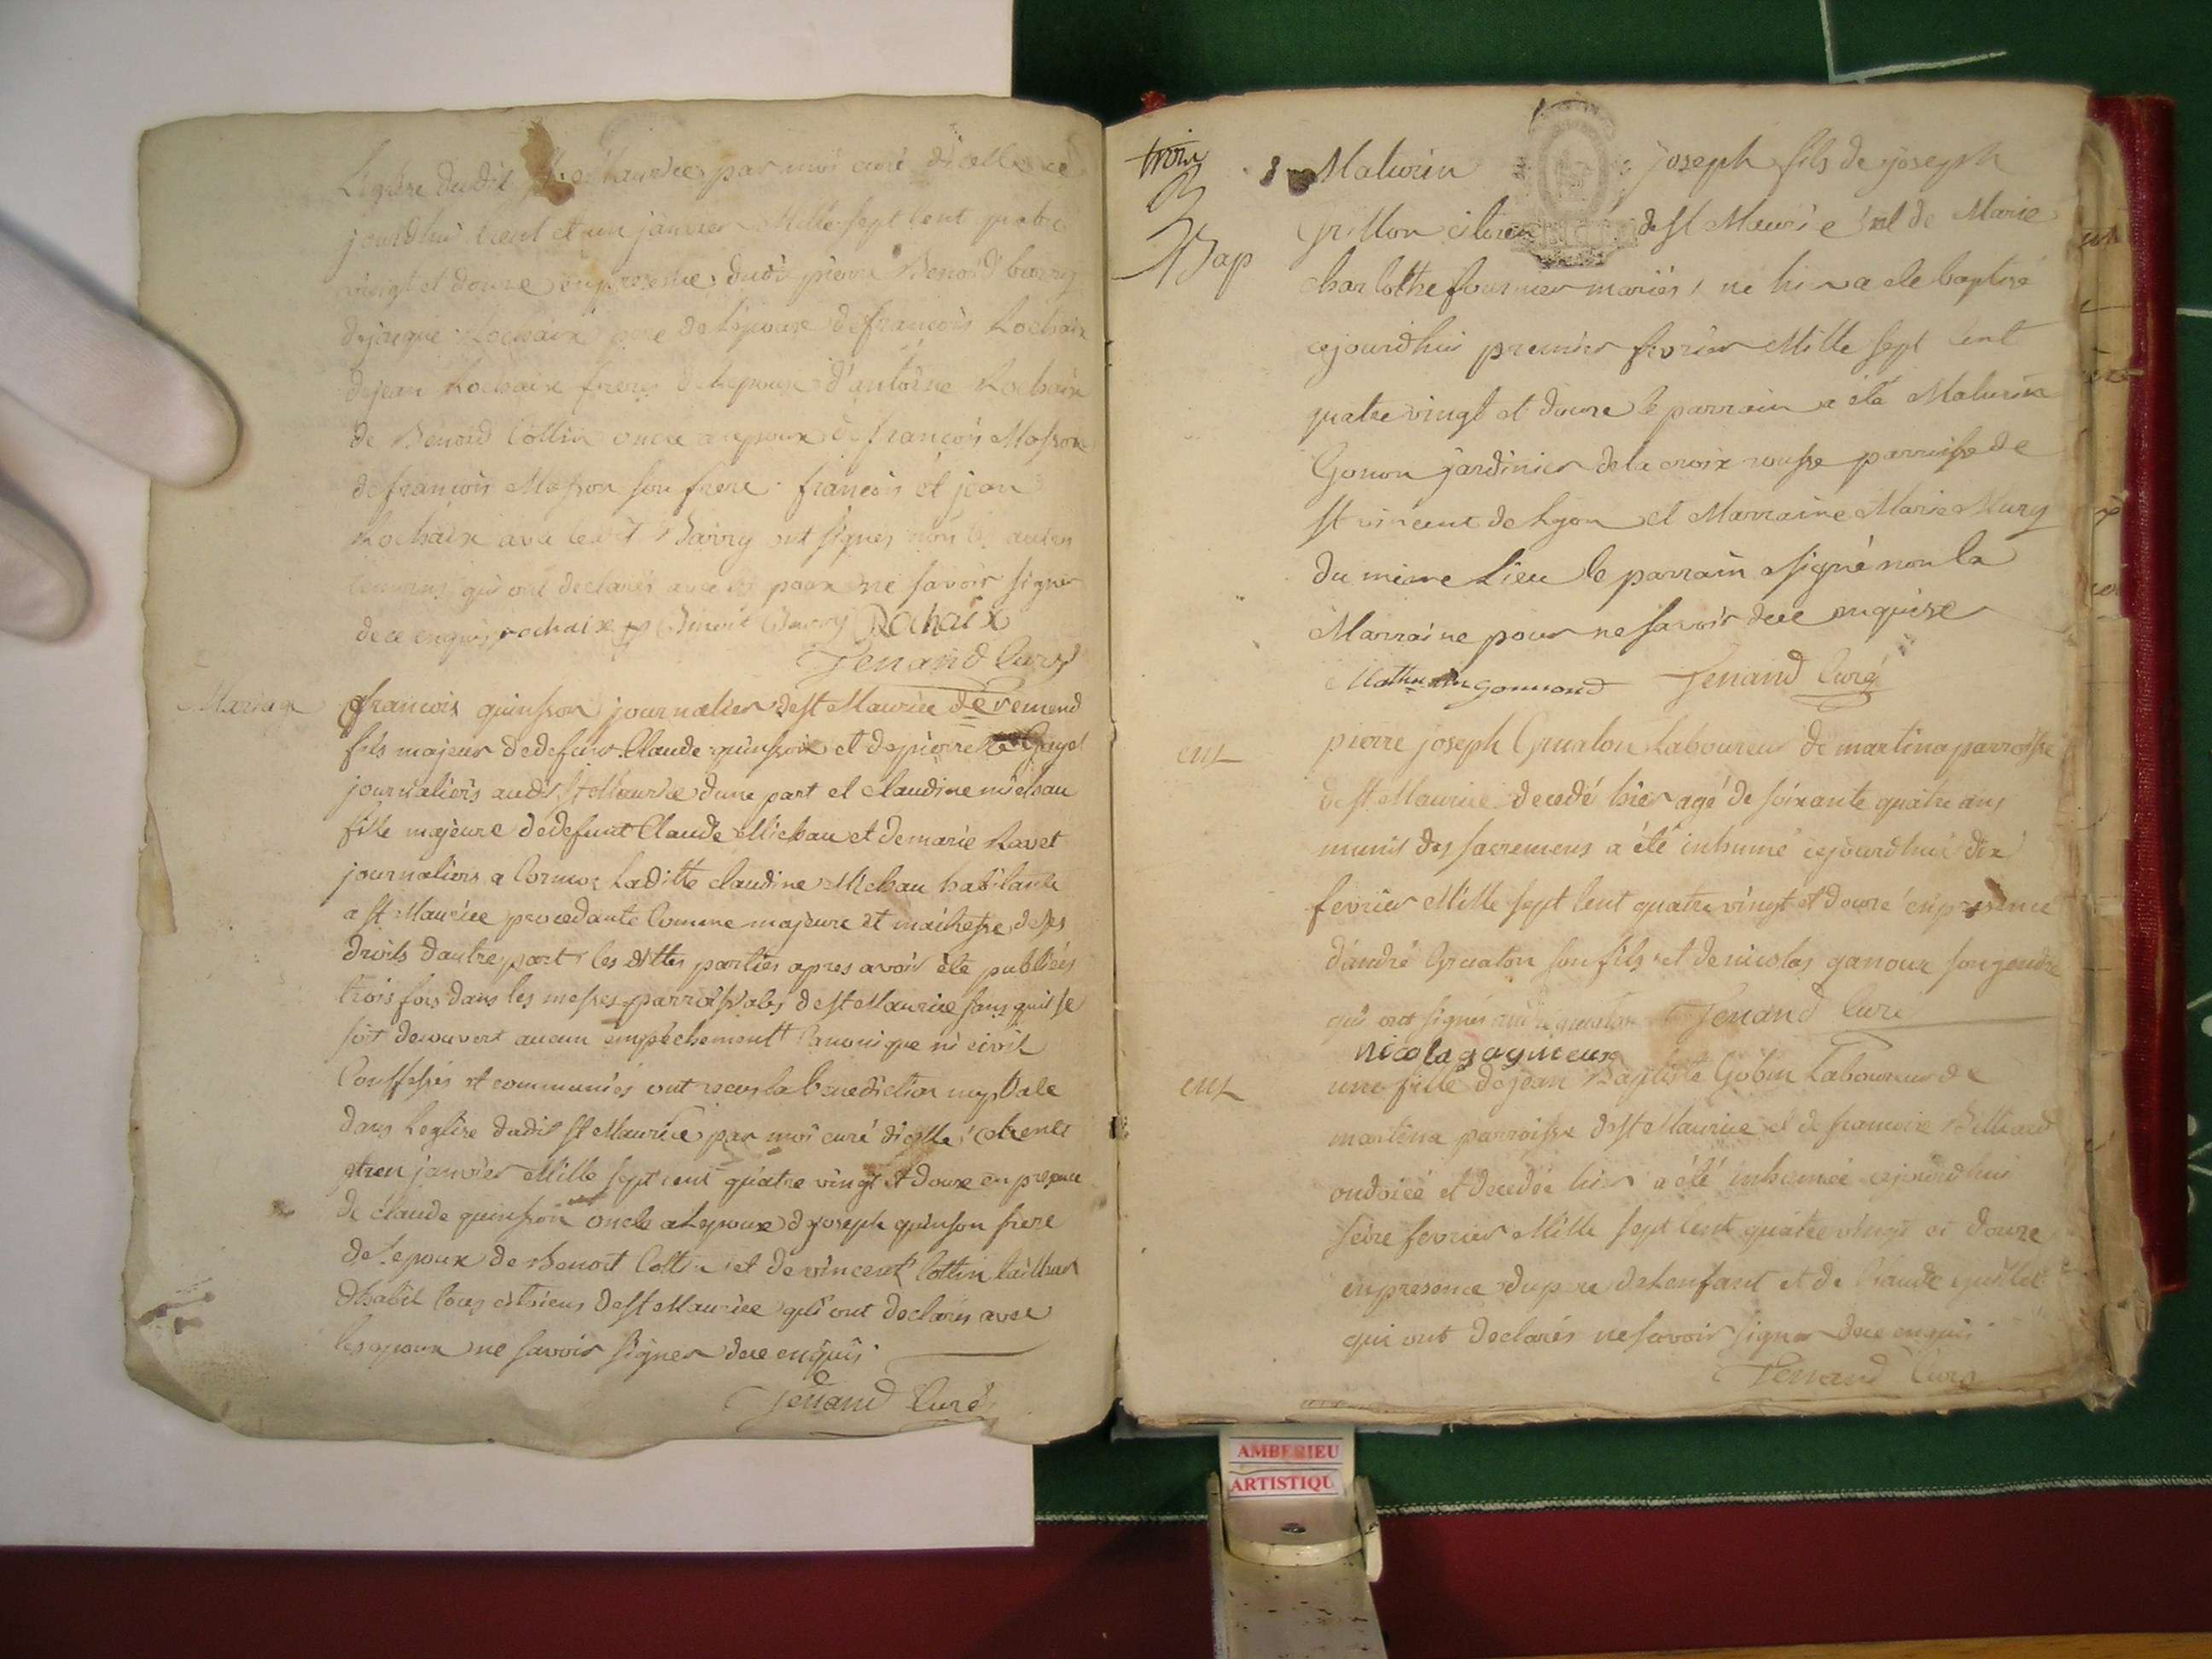 L'eglise dudit St Maurice par moi curé dicelle ce
jourdhui trent et un janvier Mille sept Cent quatre
vingt et douze en presence dudit pierre Benoid barry
de jacque Rochaix pere de l'epouse de francois Rochaix
de jean Rochaix freres de lepouse d'antoine Rochaix
de Benoid Cottin oncle a lepoux de francois Masson
de francois Masson son frere francois et jean
Rochaix avec ledit Barry ont signés non les autres
temoins qui ont declarés avec les epoux ne savoir signer
de ce enquis rochaix Benoit Barry Rochaix
Tenand Curé
Mariage
francois quinson journalier de st Maurice de remend
fils majeur de defunt Claude quinson et de pierrette Gayet
journaliers audit St Maurice dune part et claudine michau
fille majeure de defunt Claude Michau et de marie Ravet
journaliers a Cormoz Laditte claudine Michau habitante
a st Maurice procedante Comme majeure et maitresse de ses
droits dautre part les dittes parties apres avoir été publiées
trois fois dans les messes parroissiales de st Maurice sans quil se
soit decouvert aucun empechement Canonique ni civil
Confessés et communiés ont recus la benediction nuptiale
dans Leglise dudit st Maurice par moi curé dicelle ce trente
et un janvier Mille sept cent quatre vingt et douze en presence
de claude quinson oncle a Lepoux de joseph quinson frere
de Lepoux de Benoit Cottin et de vincent Cottin tailleur
dhabit tous citoiens de st Maurice qui ont declarés avec
les epoux ne savoir signer de ce enquis
Tenand Curé
trois
Bap
Maturin joseph fils de joseph
Grillon citoien de st Maurice et de Marie
charlothe fournier mariés né hier a ete baptisé
cejourdhui premier fevrier Mille sept Cent
quatre vingt et douze le parrain a été Maturin
Gonon jardinier de la croix rousse parroisse de
st vincent de Lyon et Marraine Marie Mury
du meme Lieu le parrain a signé non la
Marraine pour ne savoir de ce enquise
Mathurin gonnond Tenand Curé
ent
pierre joseph Gruaton Laboureur de martina parroisse
de st Maurice decedé hier agé de soixante quatre ans
munis des sacremens a été inhumé cejourdhui dix
fevrier Mille sept Cent quatre vingt et douze en presence
d'andré Gruaton son fils et de nicolas ganoux son gendre
qui ont signés andré gruaton Tenand Curé
nicola gagnieux
ent
une fille de jean Baptiste Gobin Laboureur de
martina parroisse de st Maurice et de francoise Billiard
ondoiée et decedée hier a été inhumée cejourdhui
seize fevrier Mille sept Cent quatre vingt et douze
en presence du pere de Lenfant et de Claude
qui ont declarés ne savoir signer de ce enquis
Tenand Curé
AMBERIEU
ARTISTIQU